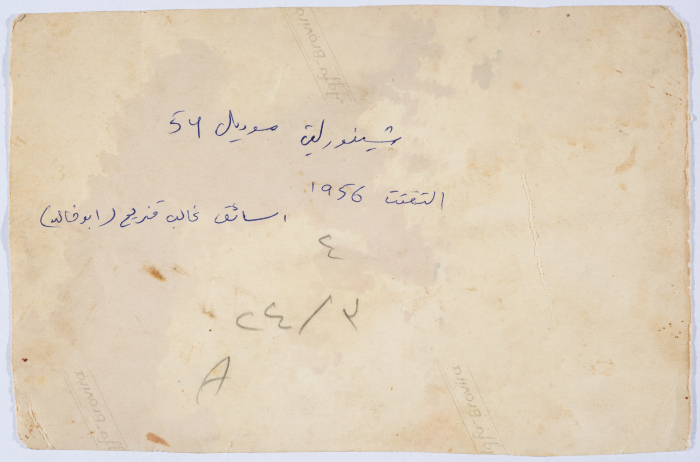 شيفورليه موديل 54
التقتت 1956
السائق غالب قنزيح (ابو خالد)
٤
٢٤/٣
A
Agfa-Brovira
Agfa-Brovira
Agfa-Brovira